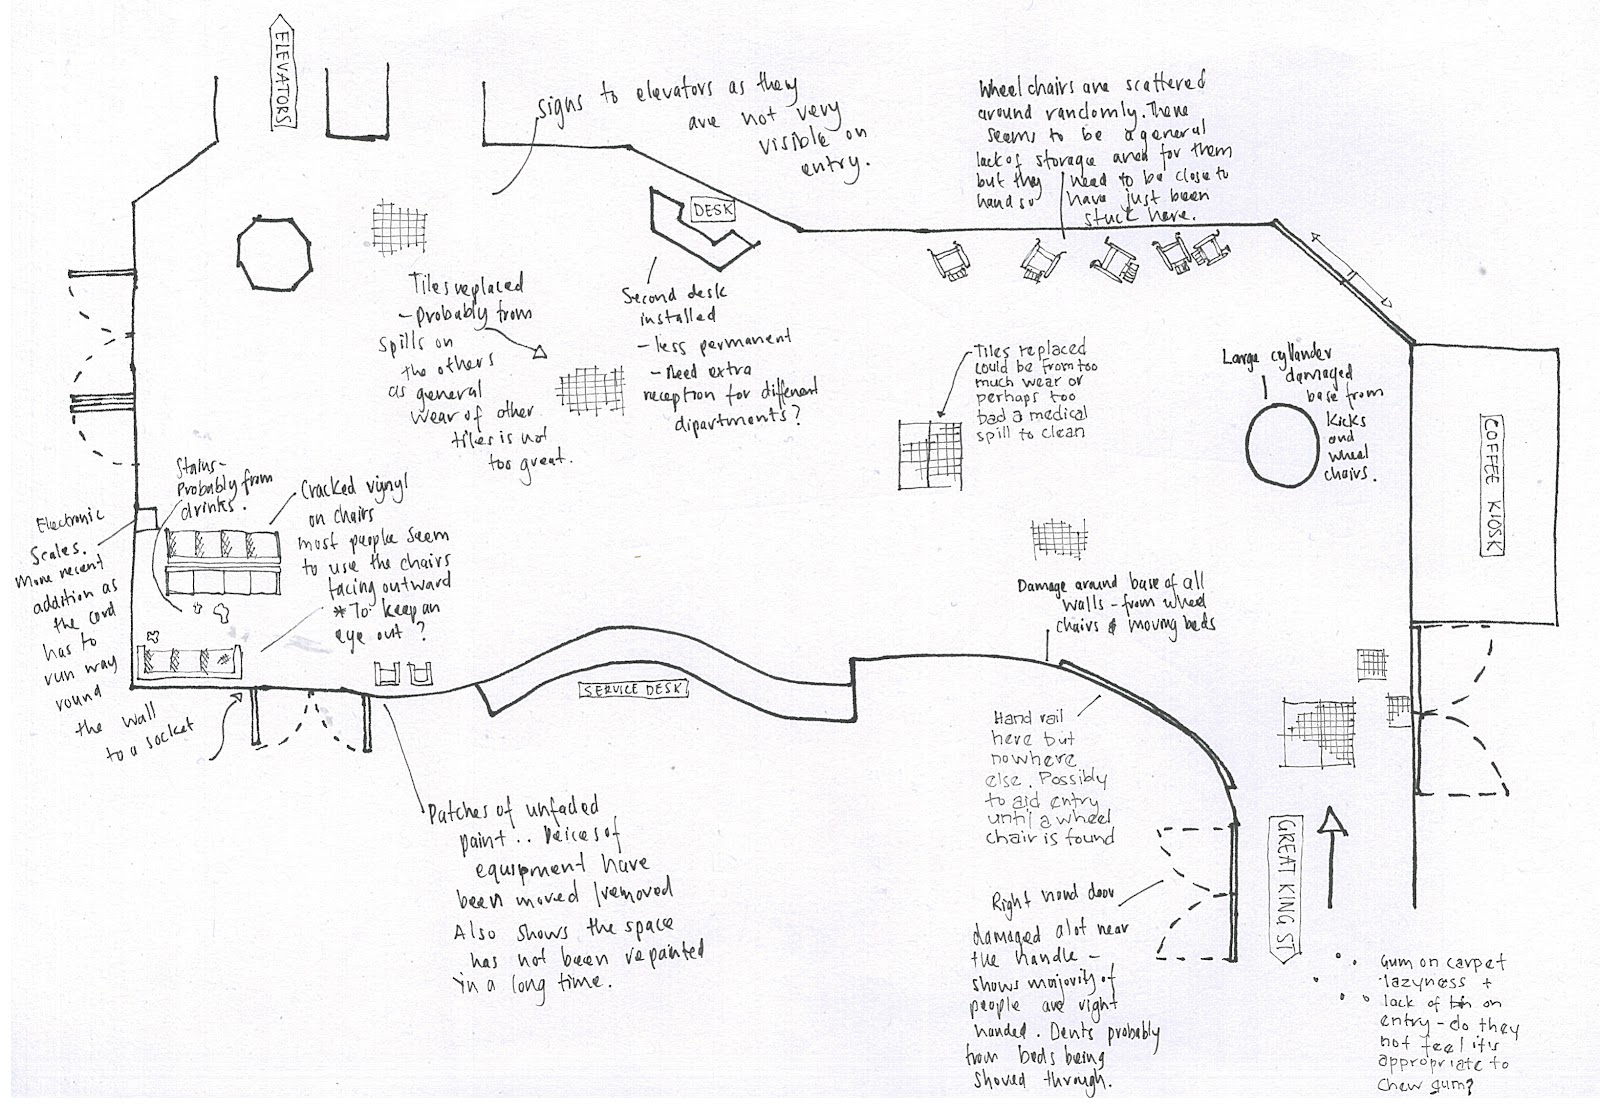 ELEVATORS
signs to elevators as they
are not very
visible on
entry.
Wheelchairs are scattered
around randomly. There
seems to be a general
lack of storage area for them
but they need to be close to
hand so have just been
stuck here.
DESK
Tiles replaced
- probably from
spills on
the others
as general
wear of other
tiles is not
too great.
Second desk
installed
- less permanent
- need extra
reception for different
dipartments?
Tiles replaced
could be from too
much wear or
perhaps too
bad a medical
spill to clean
Large cyllander
damaged
base from
kicks
and
wheel
chairs.
COFFEE KIOSK
Stains -
Probably from
drinks.
Cracked vignyl
on chairs
most people seem
to use the chairs
facing outward
* To keep an
eye out?
Electronic
Scales.
More recent
addition as
the cord
has to
run way
round
the wall
to a socket
Damage around base of all
walls - from wheel
chairs & moving beds
SERVICE DESK
Hand rail
here but
nowhere
else. Possibly
to aid entry
until a wheel
chair is found
Patches of unfaded
paint.. Peices of
equipment have
been moved / removed
Also shows the space
has not been repainted
in a long time.
GREAT KING ST
Right hand door
damaged alot near
the handle -
shows majority of
people are right
handed. Dents probably
from beds being
shoved through.
Gum on carpet
lazyness +
lack of bin on
entry - do they
not feel it's
appropriate to
chew gum?